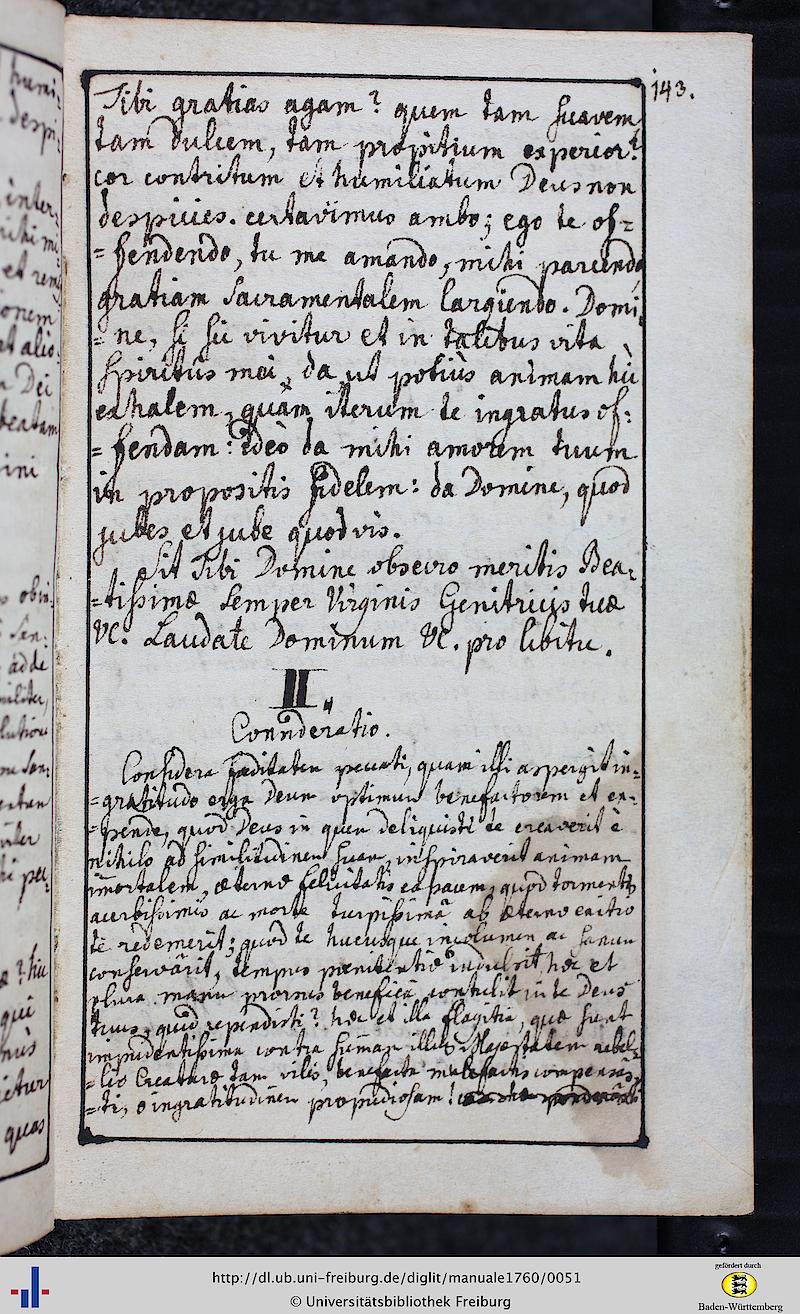 143.
Tibi gratias agam? quem tam suavem
tam dulcem, tam propitium experior?
cor contritum et humiliatum Deus non
despicies. certavimus ambo; ego te of=
=fendendo, tu me amando, mihi parcendo
gratiam Sacramentalem largiendo. Domi=
=ne, si sic vivitur et in talibus vita
spiritûs mei, da, ut potiùs animam hìc
exhalem, quàm iterum te ingratus of=
=fendam: ideò da mihi amorem tuum
in propositis fidelem: da Domine, quod
jubes et jube quod vis.
Sit Tibi Domine obsecro meritis Bea=
=tissimæ semper Virginis Genitricis tuæ
&c. Laudate Dominum &c. pro libitu.
II.
Connideratio.
Considera fæditatem peccati, quam illi aspergit in=
=gratitudo erga Deum optimum benefactorem et ex=
=pende, quod Deus in quem deliquisti te creaverit è
nihilo ad similitudinem suam, inspiraverit animam
immortalem, æternæ felicitatis capacem, quod tormentis
acerbissimis ac morte turpissimâ ab æterno exitio
te redemerit; quod te hucusque incolumem ac sanum
conservârit, tempus pœnitentiæ indulsit, hæc et
plura manu prorsus beneficâ contulit in te Deus
tuus, quid rependisti? hæc et illa flagitia, quæ sunt
impudentissima contra summam illius Majestatem rebel=
=lio Creaturæ tam vilis, benefacta malefactis compensâs=
=ti, o ingratitudinem propudiosam!
hum=
despi=
inter=
mihi mi
et rem
ionem
at alio
Dei
beatam
ini
obin=
sen=
adde
militer,
lutione
san=
hi pec=
? hic
qui
quas
http://dl.ub.uni-freiburg.de/diglit/manuale1760/0051
© Universitätsbibliothek Freiburg
gefördert durch
Baden-Württemberg